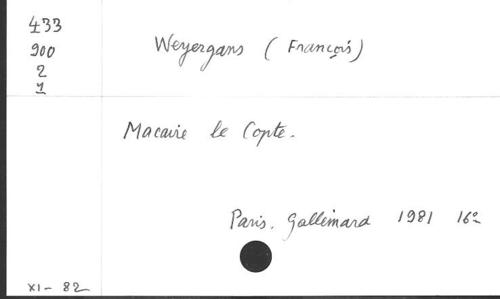 433
900
2
1
Weyergans (François)
Macaire le Copte.
Paris. Gallimard 1981 16º
XI - 82